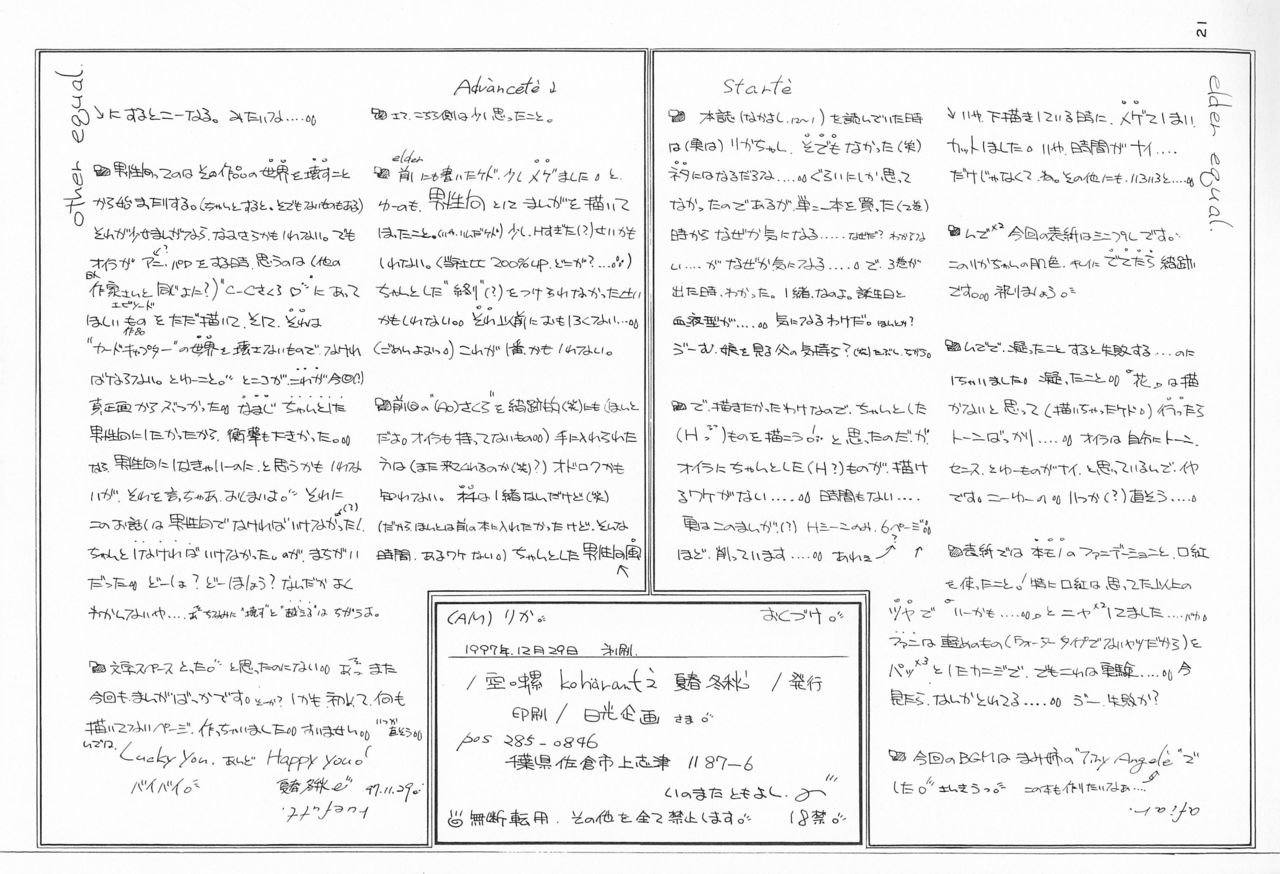 21
Startè
本誌(なかよし,12〜1)を読んでいた時
は(実は)りかちゃん、そでもなかった(笑)
ネタにはなるだろな....。ぐらいにしか思って
なかったのであるが、単こー本を買った(2巻)
時からなぜか気になる.....なぜだ?わからな
い....がなぜか気になる....。で、3巻が
出た時、わかった。一緒なのよ。誕生日と
血液型が....。気になるわけだ。ほんとか?
うーむ、娘を見る父の気持ち?(笑)たぶん、ちがう。
で、描きたかったわけなので、ちゃんとした
(H)ものを描こう!と思ったのだが、
オイラにちゃんとした(H?)ものが、描け
るワケがない....。時間もない....
実はこのまんが(?) Hシーンのみ、6ページ
ほど、削っています....。あれぇ
elder egual.
↓いや、下描きしている時に、メゲてしまい
カットしました。いや、時間がナイ....
だけじゃなくて、ね。その他にも、いろいろと....。
んで×2 今回の表紙はミニプレです。
このりかちゃんの肌色、キレイにでてたら結跡い
です。。祈りましょう。
んでで、凝ったことすると失敗する....のに
しちゃいました。凝ったこと。『花』は描
かないと思って(描いちゃったケド。)行ったら
トーンばっかし....。オイラは自分にトーン
センス、とゆーものがナイ、と思っているんで、イヤ
です。こーゆーの。いつか(?)直そう....。
表紙では本モノのファンデーションと、口紅
を使ったこと。!特に口紅は思ってた以上の
ツヤで『いーかも....』とニヤ×2してました....バカ。
ファンは重めのもの(ウォータータイプでないヤツだから)を
パッ×3としたカンジで、でもこれは実験....。今
見たら、なんかとれてる....。うー、失敗か?
今回のBGMはまみ姉の"Tiny Angelè"で
した。さんきうっ。この本も作りたいなあ....
afiar.
Advancetè 2
さて、こちら側は少し思ったこと。
elder
前にも書いたケド、少しメゲました。と、
ゆーのも、男性向としてまんがを描いて
ほったこと。(いや、いんだケド)少し、Hすぎた(?)せいかも
しれない。(当社比 200%up、どこが?....)
ちゃんとした"終り"(?)をつけられなかったせい
かもしれない。それ以前におもしろくない....
(ごめんよおっ。)これが1番、かもしれない。
前回の"(Ao)さくら"を結跡的(笑)にも(ほんと
だよ。オイラも持ってないもの)手に入れられた
方は(また来てくれるのか(笑)?)オドロクかも
知れない。本科は一緒なんだけど(笑)
(だから、ほんとは前の本に入れたかったけど、そんな
時間、あるワケない。)ちゃんとした男性向風
other egual.
↓にするとこーなる。みたいな....
男性向ってのはその作品の世界を壊すこと
から始まだりする。(ちゃんとすると、とでもないものもある)
それが少女まんがなら、なおさらかもしれない。でも
オイラがアニ、パロをする時、思うのは(他の
作家さんと同じよに?)"C-Cさくら♡"にあって
エピソード
ほしいものをただ描いて、そして、それは
作品
"カードキャプター"の世界を壊さないもので、なけれ
ばならない。とゆーこと。ところが、これが今回(?)
真正面からぶつかった。なまじ ちゃんとした
男性向にしたかったから、衝撃も大きかった。
なら、男性向にしなきゃいーのに、と思うかもしれな
いが、それを言っちゃあ、おしまいよ。それに
このお話しは男性向でなければいけなかった(?)。
ちゃんとしなければいけなかった。のが、まちがい
だった。どーしょ?どーほしょう?なんだかよく
わからしないや....あ、ちなみに"壊す"と"越える"はちがうよ。
文字スペースとった。と思ったのにない。あっ、また
今回も、まんがばっかです。そーか?しかも、初めて、何も
描いてないページ、作っちゃいました。すいません。いつか直そう。
んでは、
Lucky You. あんど Happy You!
バイバイ。 夏春冬秋 97.11.29
(AM)りか。 おくづけ。
1997年.12月29日 初刷
/空。螺 koharantz 夏春冬秋 /発行
印刷/ 日光企画 さま
pos 285-0846
千葉県佐倉市上志津 1187-6
いのまたともよし.
無断転用、その他を全て禁止します。 18禁。